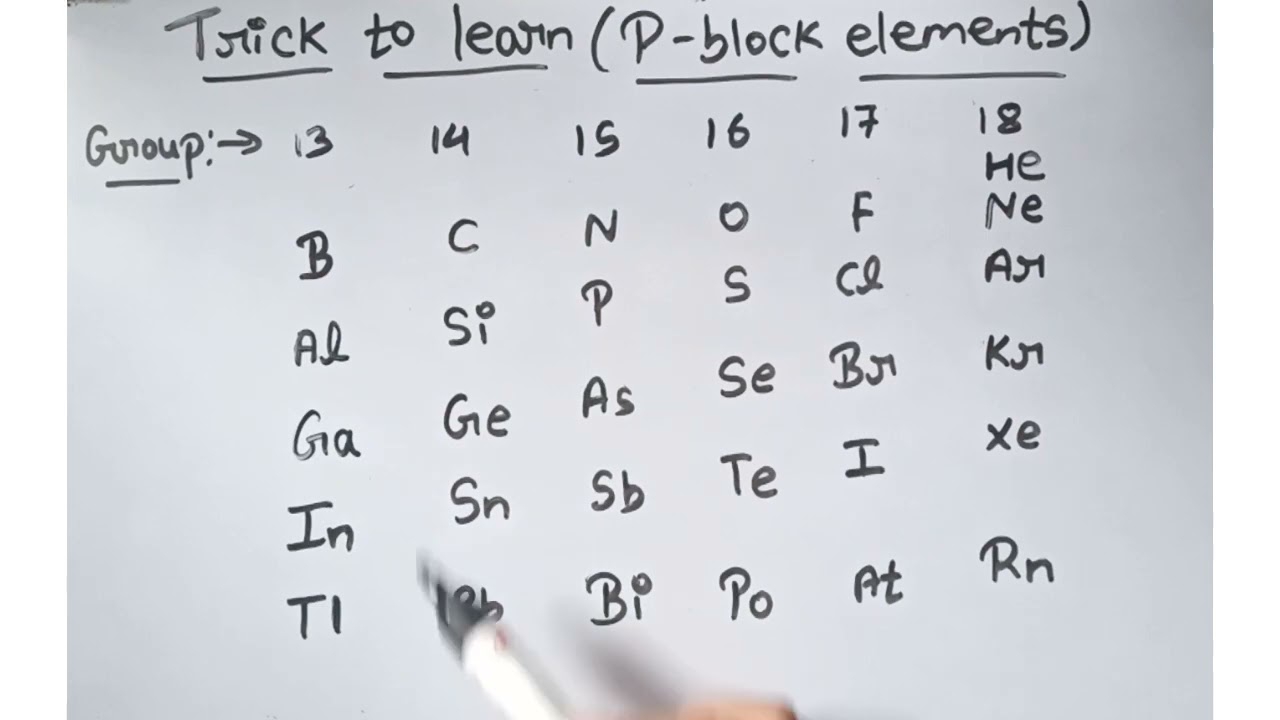 Trick to learn (P-block elements)
Group:→ 13 14 15 16 17 18
He
B C N O F Ne
Al Si P S Cl Ar
Ga Ge As Se Br Kr
In Sn Sb Te I Xe
Tl Pb Bi Po At Rn